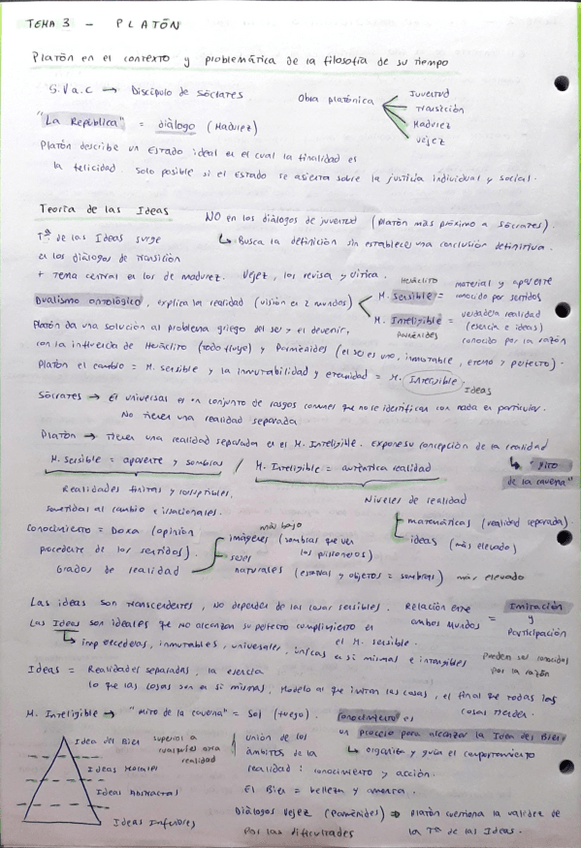 TEMA 3 - PLATÓN
Platón en el contexto y problemática de la filosofía de su tiempo
S.V a.C → Discípulo de Sócrates
Obra platónica
Juventud
Transición
Madurez
Vejez
"La República" = diálogo (Madurez)
Platón describe un Estado ideal en el cual la finalidad es
la felicidad. Solo posible si el Estado se asienta sobre la justicia individual y social.
Teoría de las Ideas
NO en los diálogos de juventud (Platón más próximo a Sócrates).
↳ Busca la definición sin establecer una conclusión definitiva.
Tª de las Ideas surge
en los diálogos de transición
+ tema central en los de madurez. Vejez, los revisa y critica.
Dualismo ontológico, explica la realidad (visión es 2 mundos)
Heráclito
M. Sensible = material y aparente
conocido por sentidos
M. Inteligible = verdadera realidad
(esencia e ideas)
Parménides
conocido por la razón
Platón da una solución al problema griego del ser y el devenir,
con la influencia de Heráclito (todo fluye) y Parménides (el ser es uno, inmutable, eterno y perfecto).
Platón el cambio = M. sensible y la inmutabilidad y eternidad = M. Inteligible
Ideas
Sócrates → El universal es un conjunto de rasgos comunes que no se identifican con nada en particular.
No tienen una realidad separada
Platón → Tienen una realidad separada en el M. Inteligible. Expone su concepción de la realidad
↳ "Mito
de la caverna"
M. Sensible = aparente y sombras / M. Inteligible = auténtica realidad
Realidades finitas y corruptibles,
sometidas al cambio e irracionales.
Niveles de realidad
matemáticas (realidad separada).
ideas (más elevado)
Conocimiento = Doxa (opinión
procedente de los sentidos).
Grados de realidad
más bajo
imágenes (sombras que ven
los prisioneros)
seres
naturales (animal y objetos = sombras) más elevado
Las ideas son transcendentes, no dependen de las cosas sensibles.
Relación entre
ambos mundos = Imitación
y
Participación
Las Ideas son ideales que no alcanzan su perfecto cumplimiento en
el M. sensible.
↳ imperecederas, inmutables, universales, únicas a sí mismas e intangibles
Pueden ser conocidos
por la razón
Ideas = Realidades separadas, la esencia
lo que las cosas son a sí mismas, modelo al que imitan las cosas, el final que todas las
cosas tienden.
M. Inteligible → "Mito de la caverna" = Sol (fuego).
Conocimiento es
un proceso para alcanzar la Idea del Bien
↳ organiza y guía el comportamiento
Idea del Bien superior a
cualquier otra
realidad
Ideas Morales
Ideas Abstractas
Ideas Inferiores
unión de los
ámbitos de la
realidad: conocimiento y acción.
El Bien = belleza y
Diálogos Vejez (Parménides) ⇒ Platón cuestiona la validez de
la Tª de las Ideas.
por las dificultades